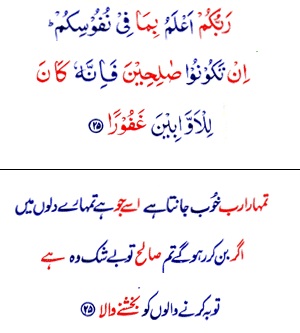 رَبُّكُمْ اَعْلَمُ بِمَا فِيْ نُفُوْسِكُمْ ؕ
اِنْ تَكُوْنُوْا صٰلِحِيْنَ فَاِنَّهٗ كَانَ
لِلْاَوَّابِيْنَ غَفُوْرًا ﴿۲۵﴾
تمہارا رب خُوب جانتا ہے اسے جو ہے تمہارے دلوں میں
اگر بن کر رہو گے تم صالح تو بے شک وہ ہے
توبہ کرنے والوں کو بخشنے والا ﴿۲۵﴾